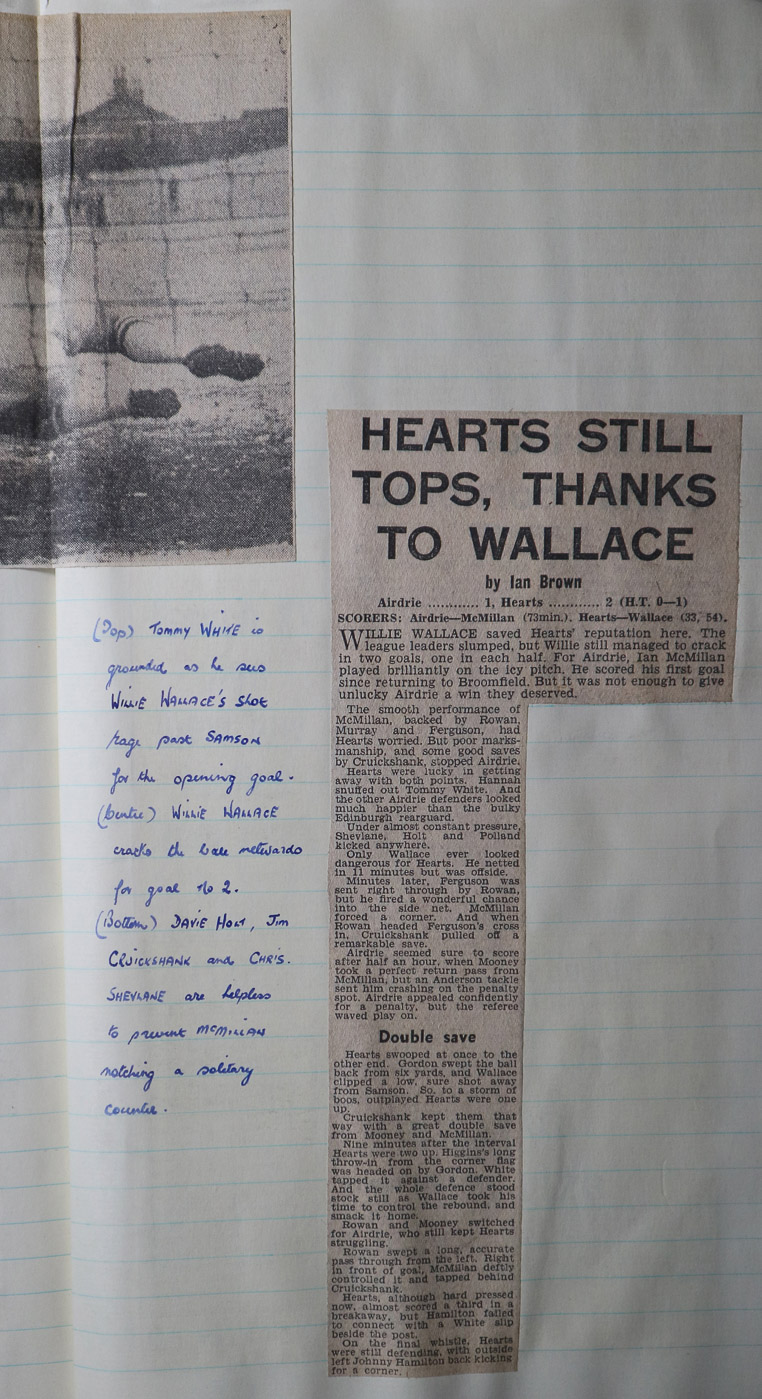 (Top) TOMMY WHITE is
grounded as he sees
WILLIE WALLACE'S shot
rage past SAMSON
for the opening goal.
(Centre) WILLIE WALLACE
cracks the ball netwards
for goal No 2.
(Bottom) DAVIE HOLT, JIM
CRUICKSHANK and CHRIS.
SHEVLANE are helpless
to prevent McMILLAN
notching a solitary
counter.
HEARTS STILL
TOPS, THANKS
TO WALLACE
by Ian Brown
Airdrie ............ 1, Hearts ............ 2 (H.T. 0—1)
SCORERS: Airdrie—McMillan (73min.). Hearts—Wallace (33, 54).
WILLIE WALLACE saved Hearts' reputation here. The
league leaders slumped, but Willie still managed to crack
in two goals, one in each half. For Airdrie, Ian McMillan
played brilliantly on the icy pitch. He scored his first goal
since returning to Broomfield. But it was not enough to give
unlucky Airdrie a win they deserved.
The smooth performance of
McMillan, backed by Rowan,
Murray and Ferguson, had
Hearts worried. But poor marks-
manship, and some good saves
by Cruickshank, stopped Airdrie.
Hearts were lucky in getting
away with both points. Hannah
snuffed out Tommy White. And
the other Airdrie defenders looked
much happier than the bulky
Edinburgh rearguard.
Under almost constant pressure,
Shevlane, Holt and Polland
kicked anywhere.
Only Wallace ever looked
dangerous for Hearts. He netted
in 11 minutes but was offside.
Minutes later, Ferguson was
sent right through by Rowan,
but he fired a wonderful chance
into the side net. McMillan
forced a corner. And when
Rowan headed Ferguson's cross
in, Cruickshank pulled off a
remarkable save.
Airdrie seemed sure to score
after half an hour, when Mooney
took a perfect return pass from
McMillan, but an Anderson tackle
sent him crashing on the penalty
spot. Airdrie appealed confidently
for a penalty, but the referee
waved play on.
Double save
Hearts swooped at once to the
other end. Gordon swept the ball
back from six yards, and Wallace
clipped a low, sure shot away
from Samson. So, to a storm of
boos, outplayed Hearts were one
up.
Cruickshank kept them that
way with a great double save
from Mooney and McMillan.
Nine minutes after the interval
Hearts were two up. Higgins's long
throw-in from the corner flag
was headed on by Gordon. White
tapped it against a defender.
And the whole defence stood
stock still as Wallace took his
time to control the rebound, and
smack it home.
Rowan and Mooney switched
for Airdrie, who still kept Hearts
struggling.
Rowan swept a long, accurate
pass through from the left. Right
in front of goal, McMillan deftly
controlled it and tapped behind
Cruickshank.
Hearts, although hard pressed
now, almost scored a third in a
breakaway, but Hamilton failed
to connect with a White slip
beside the post.
On the final whistle, Hearts
were still defending, with outside
left Johnny Hamilton back kicking
for a corner.